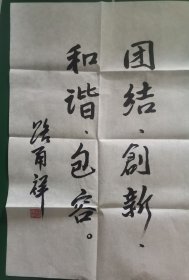 团结、創新、
和谐、包容。
路甬祥